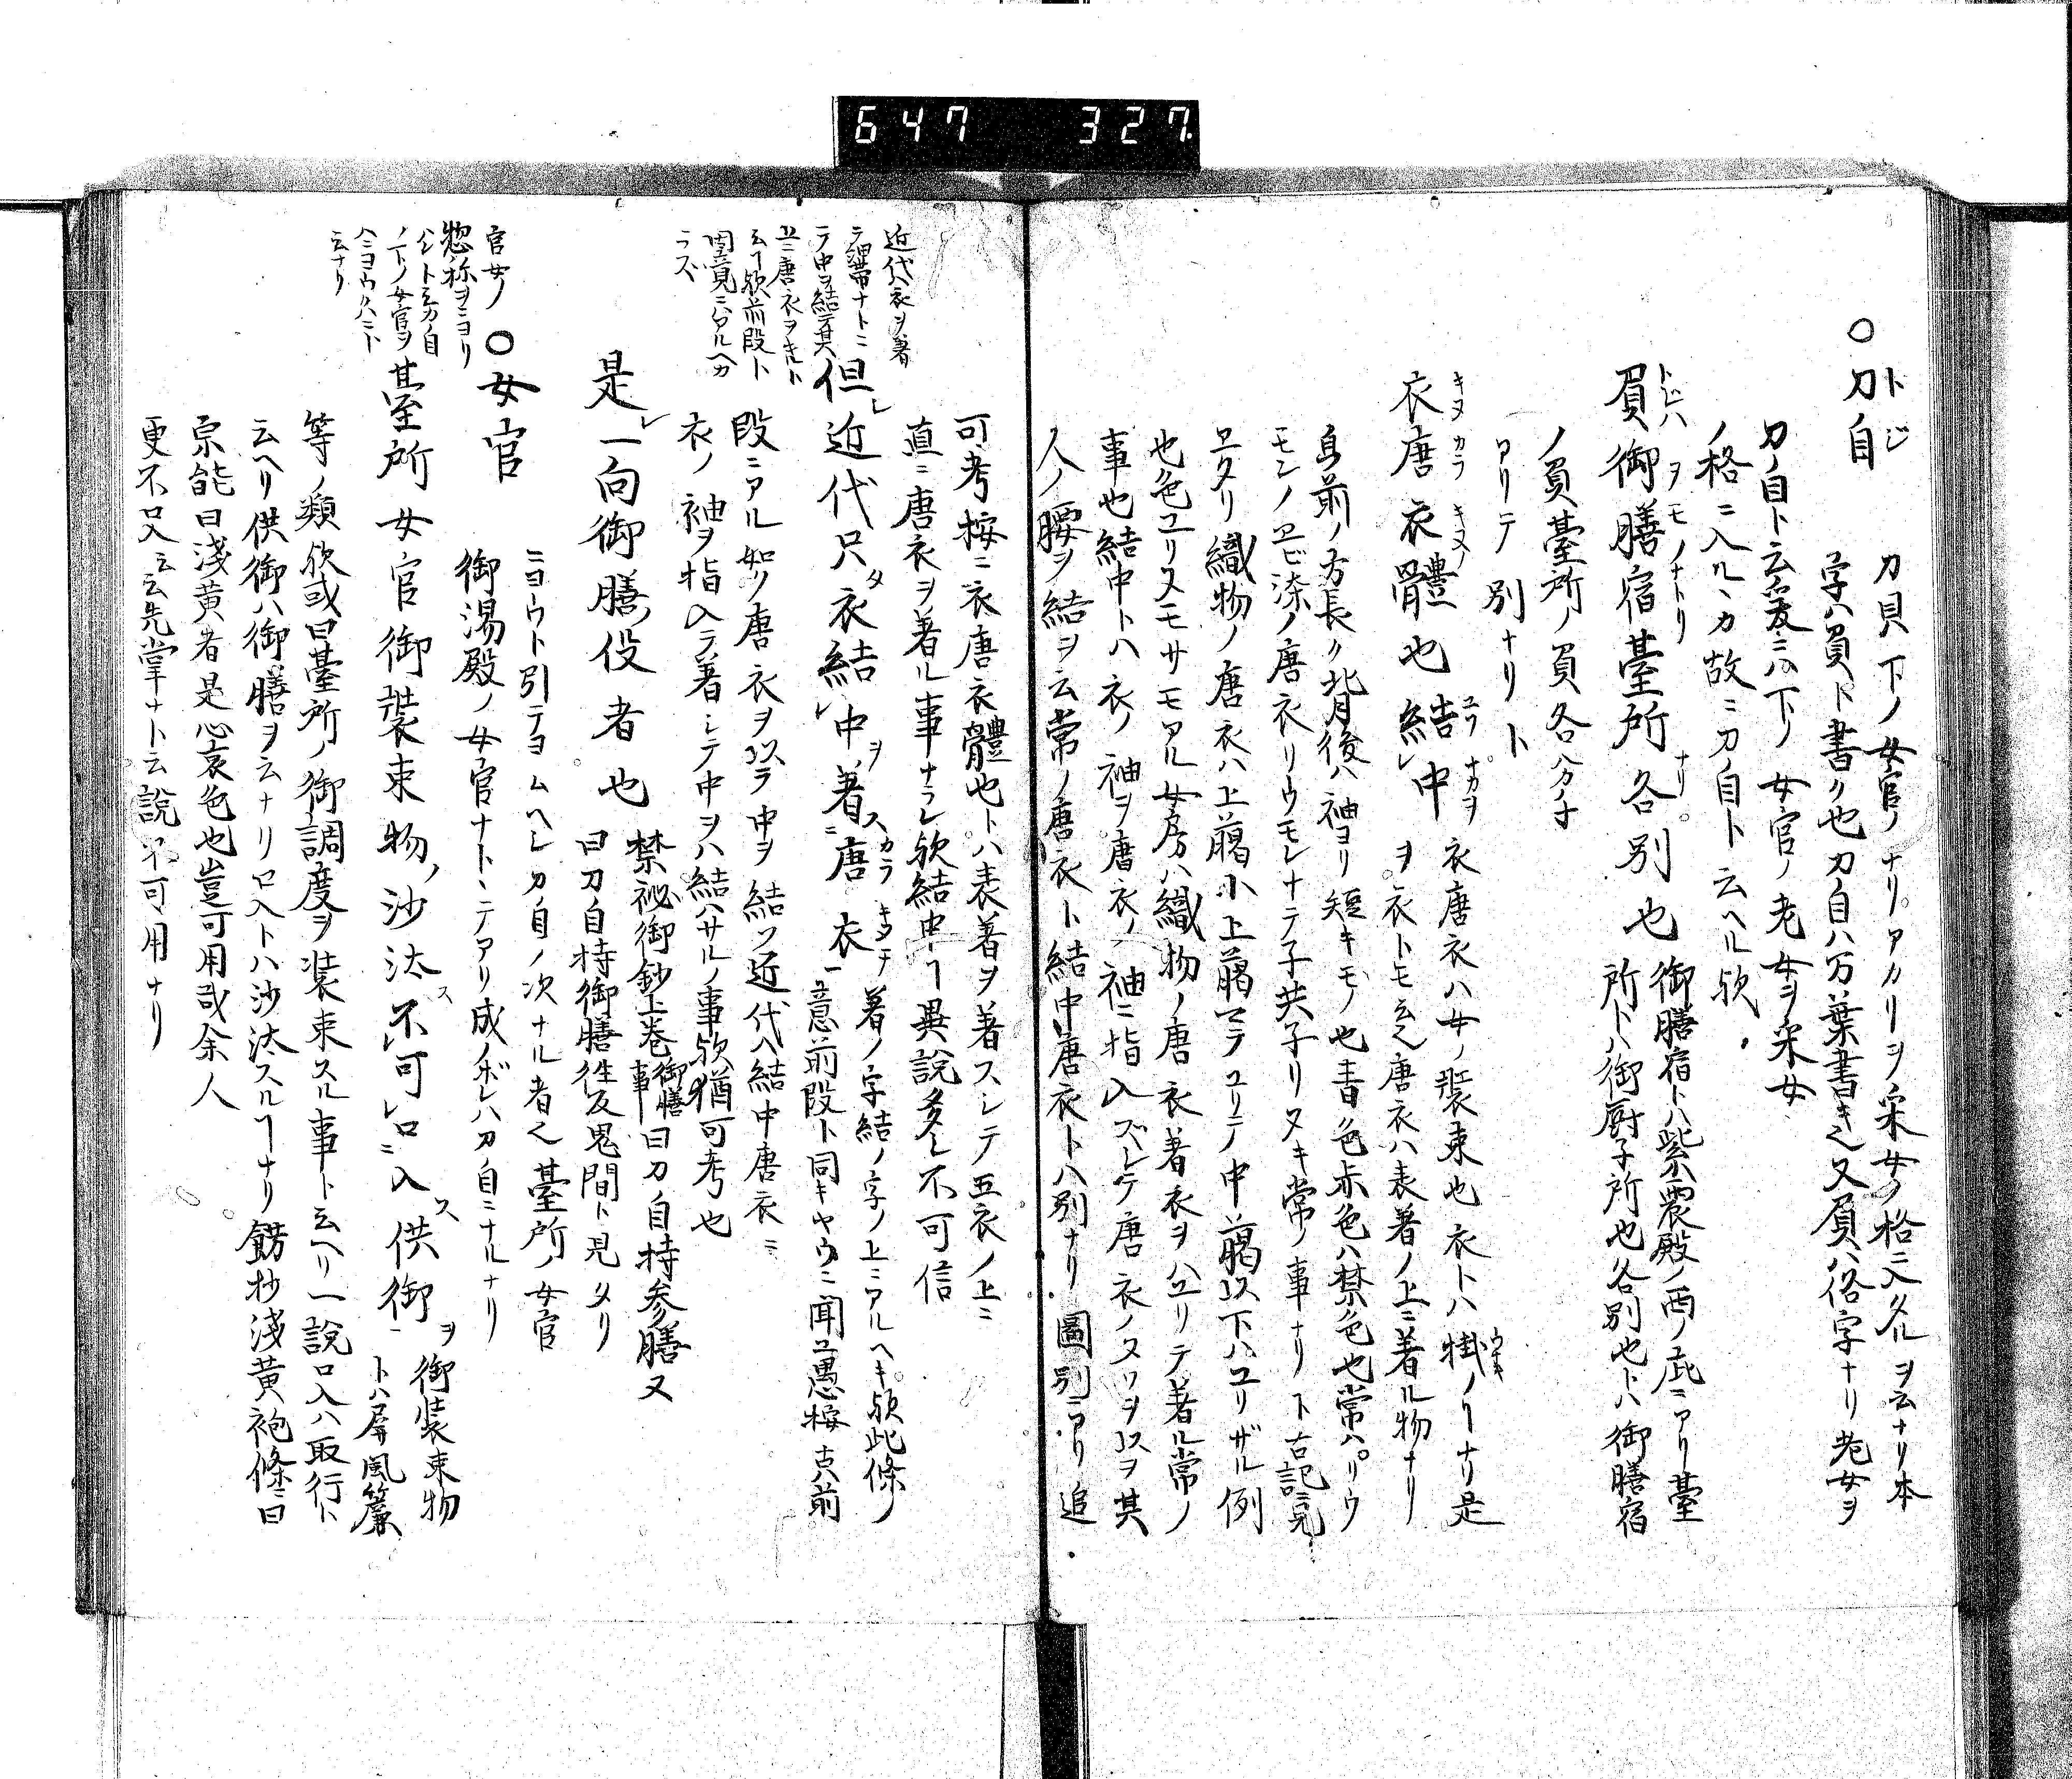 647 327.
○刀自 トジ
刀貝下ノ女官ノナリアカリヲ采女ノ格ニ入タルヲ云ナリ本
字ハ負ト書ク也刀自ハ万葉書キ也又屓ハ俗字ナリ老女ヲ
刀自ト云爰ニハ下ノ女官ノ老女ヲ采女
ノ格ニ入ルヽカ故ニ刀自ト云ヘル欤
屓御膳宿臺所各別也
御膳宿トハ紫宸殿ノ西ノ庇ニアリ臺
所トハ御厨子所也各別也トハ御膳宿
ノ負臺所ノ負各
アリテ別ナリト
衣唐衣體也結中
衣唐衣ハ女ノ裝束也衣トハ褂ノヿナリ是
ヲ衣トモ云之唐衣ハ表着ノ上ニ著ル物ナリ
身前ノ方長ク背後ハ袖ヨリ短キモノ也青色赤色ハ禁色也常ハリウ
モンノヱビ染ノ唐衣リウモンナテ子共子リヌキ常ノ事ナリト古記ニ見
ヱタリ織物ノ唐衣ハ上﨟小上﨟マテユリテ中﨟以下ハユリザル例
也色ユリスモサモアル女房ハ織物ノ唐衣著衣ヲハユリテ著ル常ノ
事也結中トハ衣ノ袖ヲ唐衣ノ袖ニ指入ズシテ唐衣ノスソヲ以ヲ其
人ノ腰ヲ結ヲ云常ノ唐衣ト結中唐衣トハ別ナリ圖別ニアリ追
可考按ニ衣唐衣體也トハ表著ヲ着スシテ五衣ノ上ニ
直ニ唐衣ヲ著ル事ナラン欤結中ノヿ異說多シ不可信
近代衣ヲ著
テ細帶ナトニ
テ中ヲ結テ其
上ニ唐衣ヲキルト
云ヿ欤前段ト
同意見ニハアルヘカ
ラズ
但近代只衣結中著唐衣
著ノ字結ノ字ノ上ニアルヘキ欤此條ノ
意前段ト同キヤウニ聞ユ愚按古ハ前
段ニアル如ク唐衣ヲ以テ中ヲ結ソ近代ハ結中唐衣ニ
衣ノ袖ヲ指入テ著シテ中ヲハ結ハサルノ事欤猶可考也
是一向御膳役者也
禁祕御鈔上卷御膳事曰刀自持参膳又
曰刀自持御膳徃反鬼間ト見タリ
官女ノ
惣称ヲニヨリ
ハント云刀自
ノ下ノ女官ヲ
ハニヨウクハント
云ナリ
○女官
ニヨウト引テヨムヘシ刀自ノ次ナル者之臺所ノ女官
御湯殿ノ女官ナトニテアリ成ノボレハ刀自ニナルナリ
臺所女官御裝束物沙汰不可口入供御
御裝束物
トハ屏風簾
等ノ類欤或曰臺所ノ御調度ヲ裝束スル事ト云ヘリ一說口入ハ取行ト
云ヘリ供御ハ御膳ヲ云ナリ口入トハ沙汰スルヿナリ餝抄淺黃袍條ニ曰
宗能曰淺黃者是心喪色也豈可用哉余人
更不口又云云先掌ナト云說不可用ナリ